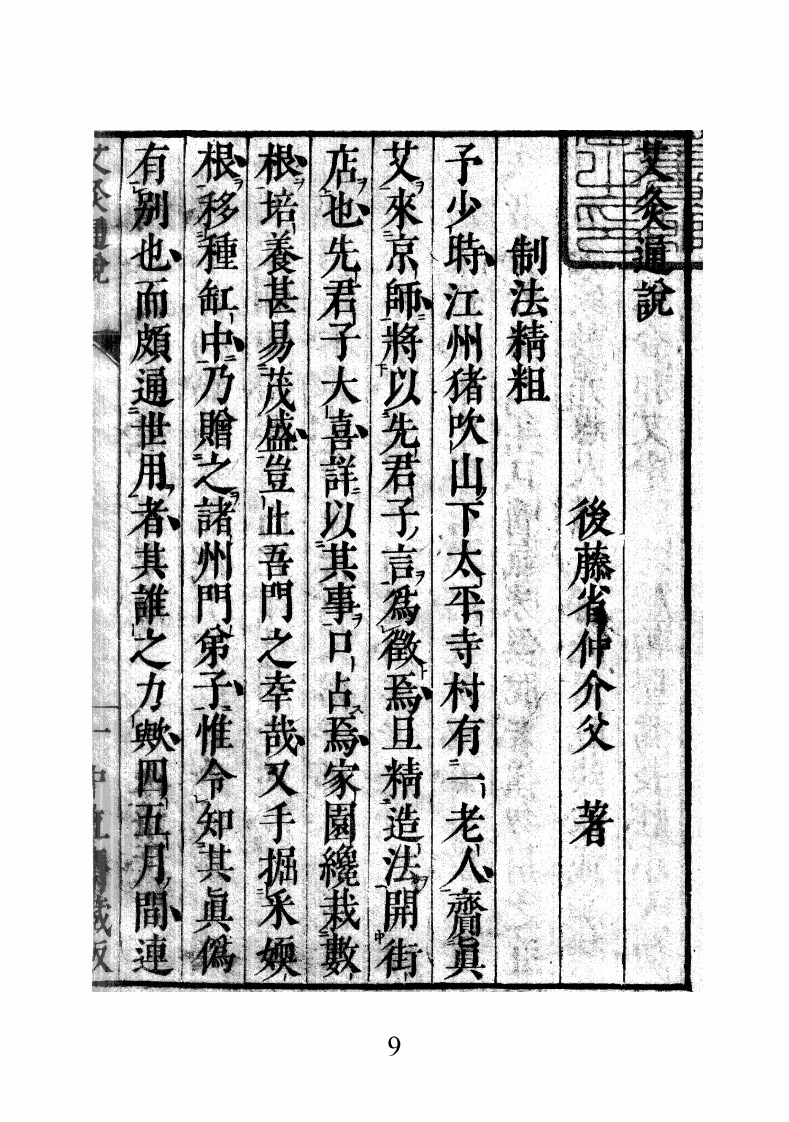 艾灸通說
後藤省仲介父 著
制法精粗
予少時、江州猪吹山下太平寺村有一老人、齎眞
艾來京師、將以先君子言爲徵焉、且精造法開街
店也、先君子大喜、詳以其事口占焉、家園纔栽數
根、培養甚易茂盛、豈止吾門之幸哉、又手掘采媆
根、移種缸中、乃贈之諸州門弟子、惟令知其眞僞
有別也、而頗通世用者、其誰之力歟、四五月間、連
艾灸通說 一
9